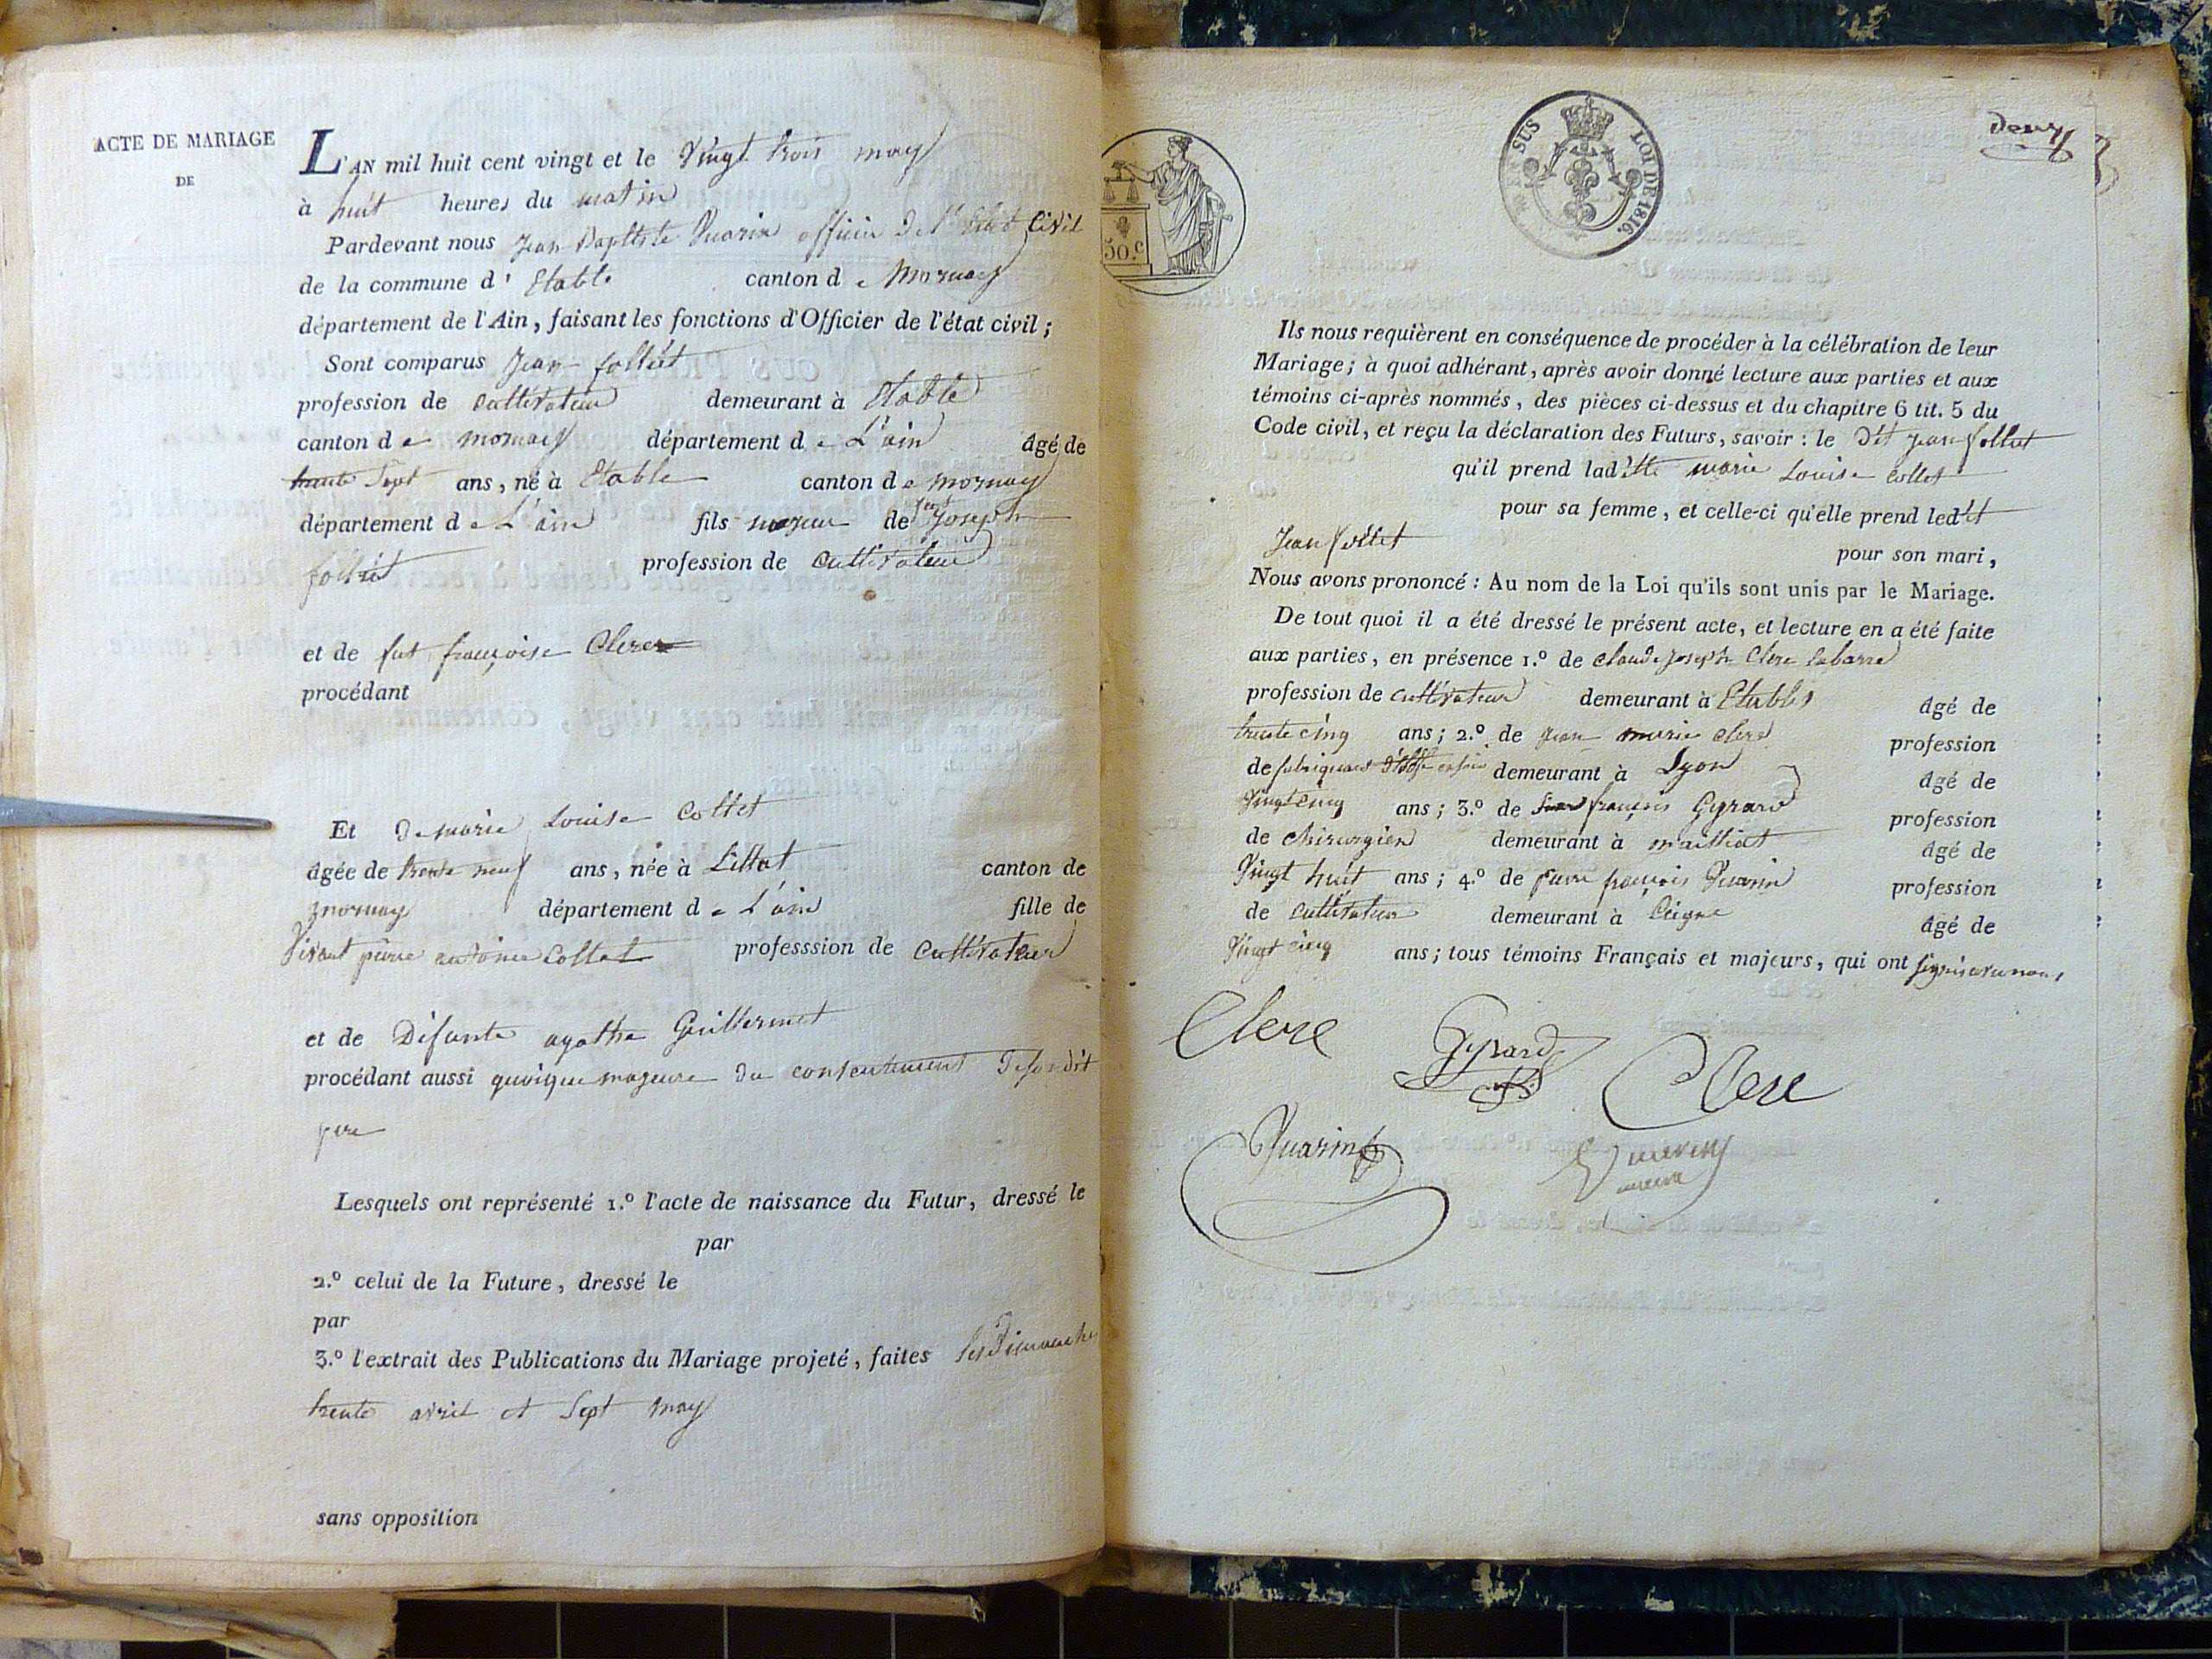 ACTE DE MARIAGE
DE
L'AN mil huit cent vingt et le Vingt trois may
à huit heures du matin
Pardevant nous Jean Baptiste Quarin officier de l'Etat Civil
de la commune d' Etable canton de Mornay
département de l'Ain, faisant les fonctions d'Officier de l'état civil;
Sont comparus Jean folliet
profession de cultivateur demeurant à Etable
canton de mornay département de L'ain âgé de
trente Sept ans, né à Etable canton de mornay
département de L'ain fils majeur de Joseph
folliet profession de Cultivateur
et de fut françoise Clerc
procédant
Et de marie Louise Collet
âgée de trente neuf ans, née à canton de
mornay département de L'ain fille de
Vivant pierre antoine Collet professsion de Cultivateur
et de Défunte agathe Guillermet
procédant aussi quoique majeure du consentement de sondit
pere
Lesquels ont représenté 1.º l'acte de naissance du Futur, dressé le
par
2.º celui de la Future, dressé le
par
3.º l'extrait des Publications du Mariage projeté, faites les Dimanches
trente avril et Sept may
sans opposition
deux
50.c
SUS LOI DE 1816.
Ils nous requièrent en conséquence de procéder à la célébration de leur
Mariage; à quoi adhérant, après avoir donné lecture aux parties et aux
témoins ci-après nommés, des pièces ci-dessus et du chapitre 6 tit. 5 du
Code civil, et reçu la déclaration des Futurs, savoir: le dit jean folliet
qu'il prend laditte marie Louise Collet
pour sa femme, et celle-ci qu'elle prend ledit
Jean folliet pour son mari,
Nous avons prononcé: Au nom de la Loi qu'ils sont unis par le Mariage.
De tout quoi il a été dressé le présent acte, et lecture en a été faite
aux parties, en présence 1.º de claude Joseph Clerc labarre
profession de cultivateur demeurant à Etables âgé de
trente cinq ans; 2.º de jean marie clerc profession
de fabriquant d'étoffe en soie demeurant à Lyon âgé de
Vingt cinq ans; 3.º de françois Gyrard profession
de chirurgien demeurant à mailliat âgé de
Vingt huit ans; 4.º de pierre françois Quarin profession
de cultivateur demeurant à Ceigne âgé de
Vingt cinq ans; tous témoins Français et majeurs, qui ont signés avec nous
Clerc Gyrard Clerc
Quarin